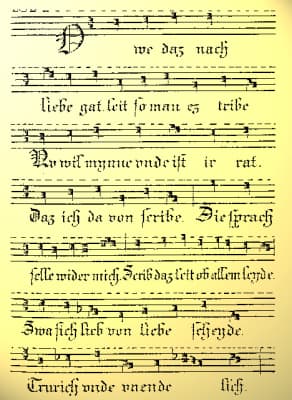 O we daz nach
liebe gat. leit so man ez tribe
Nv wil mynne vnde ist ir rat.
Daz ich da von scribe. Die sprach
selle wider mich. Scrib daz leit ob allem leyde.
Swa sich lieb von liebe scheyde.
Trurich vnde vnende lich.